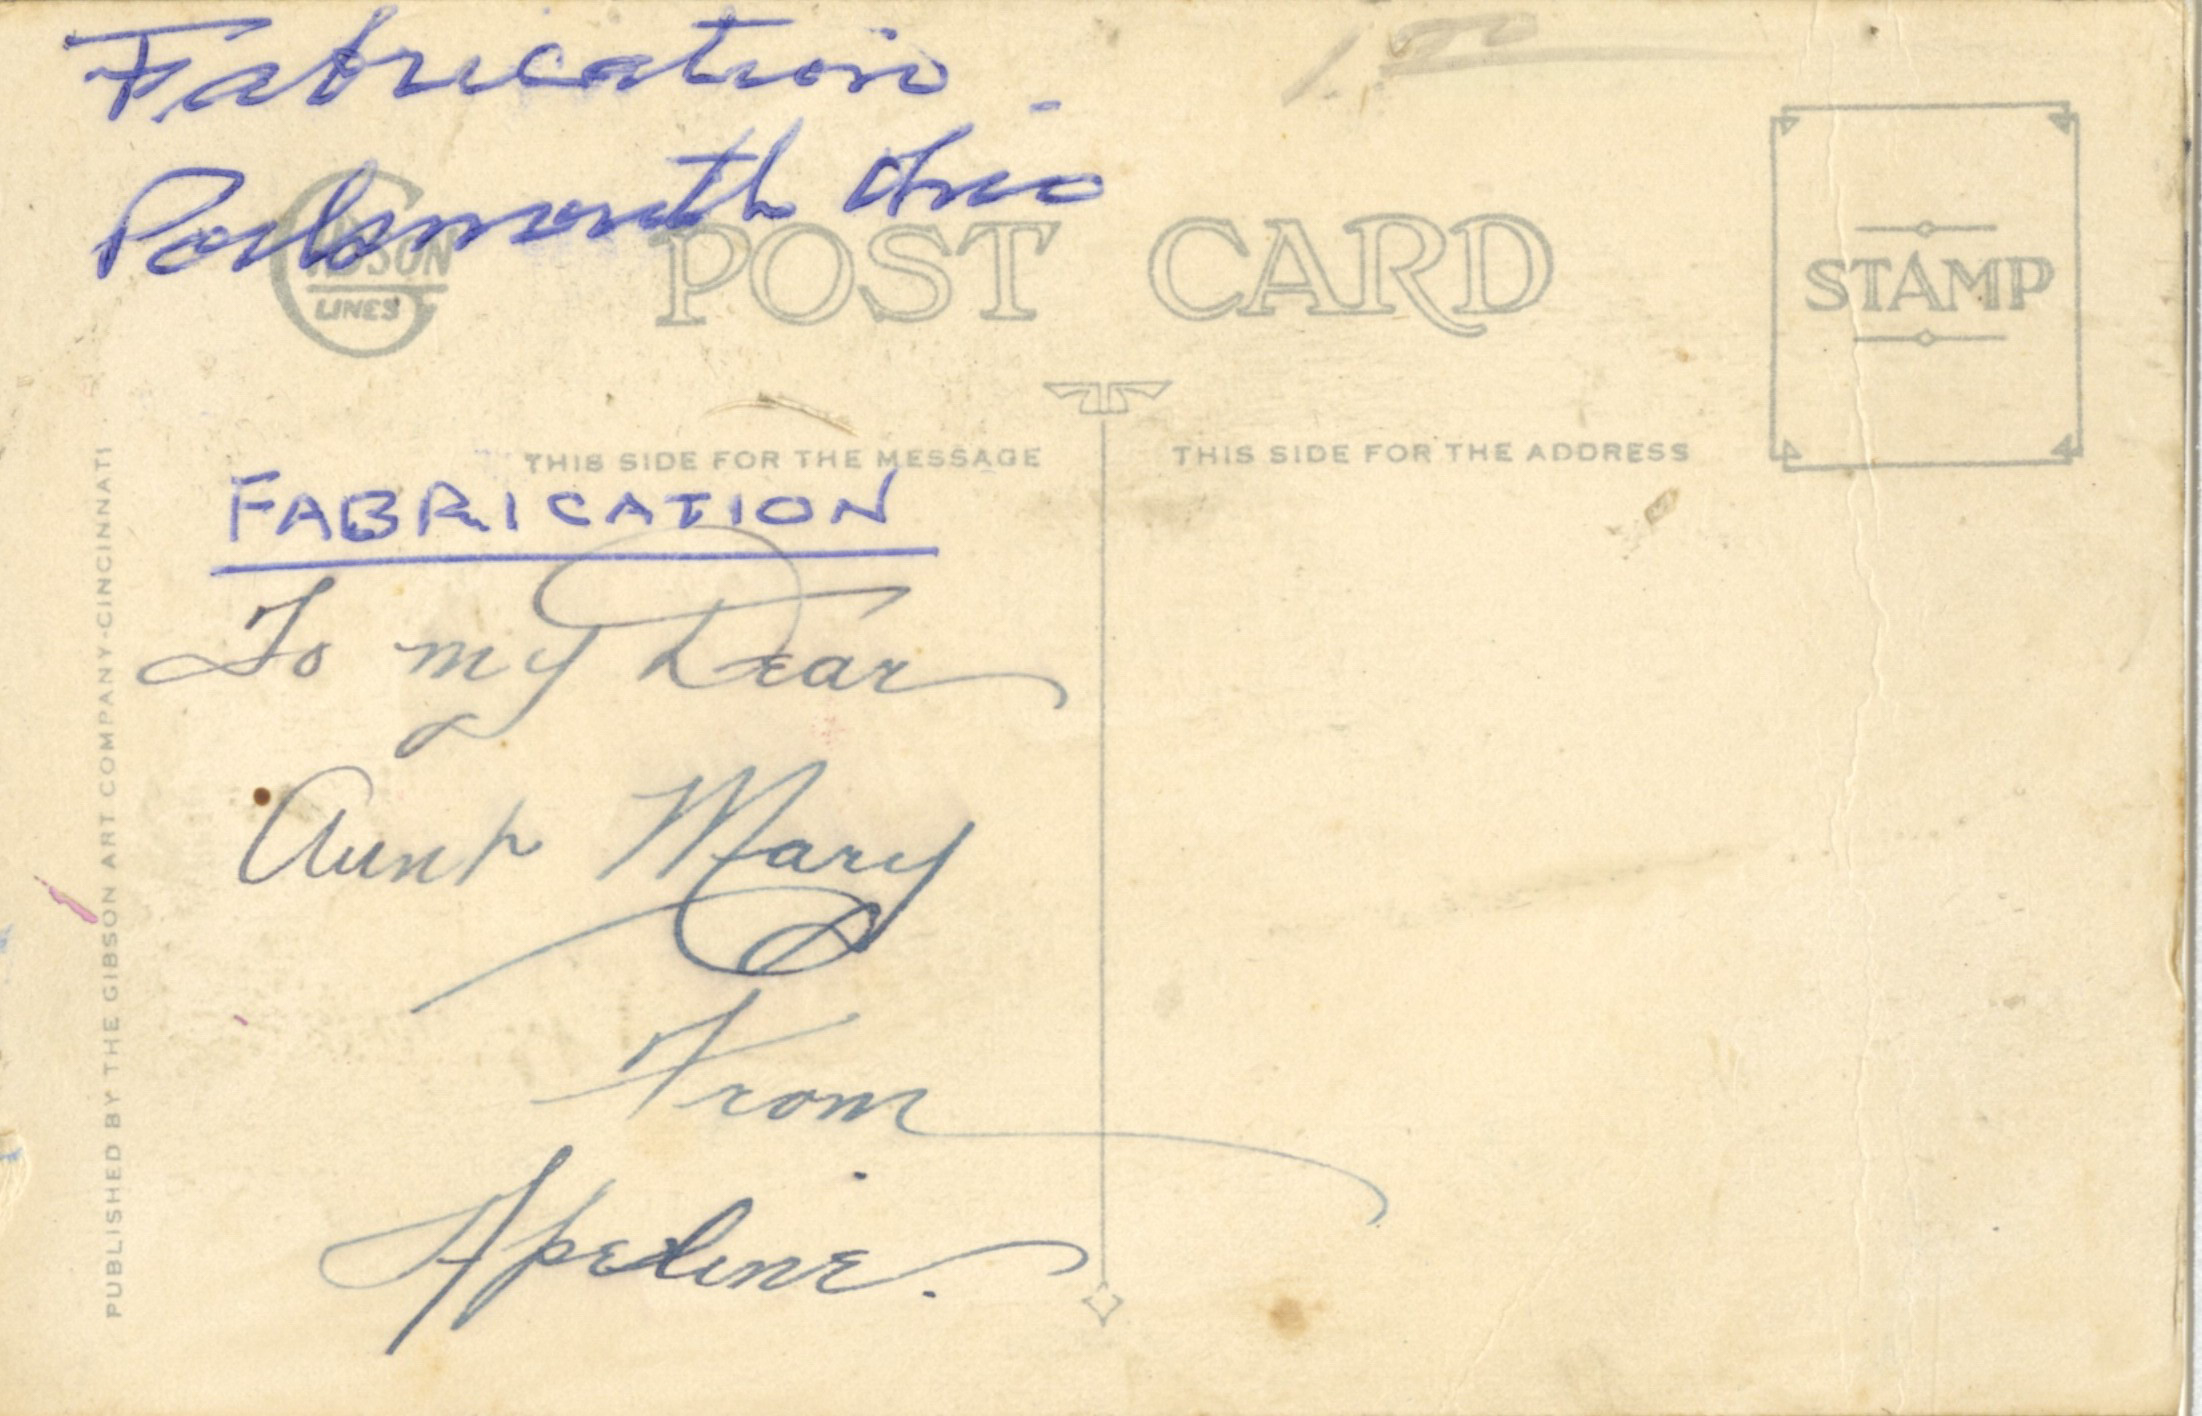 Fabrication.
Portsmouth Ohio
1.00
GIBSON
LINES
POST CARD
STAMP
THIS SIDE FOR THE MESSAGE
THIS SIDE FOR THE ADDRESS
FABRICATION
To my Dear
Aunt Mary
From
PUBLISHED BY THE GIBSON ART COMPANY-CINCINNATI